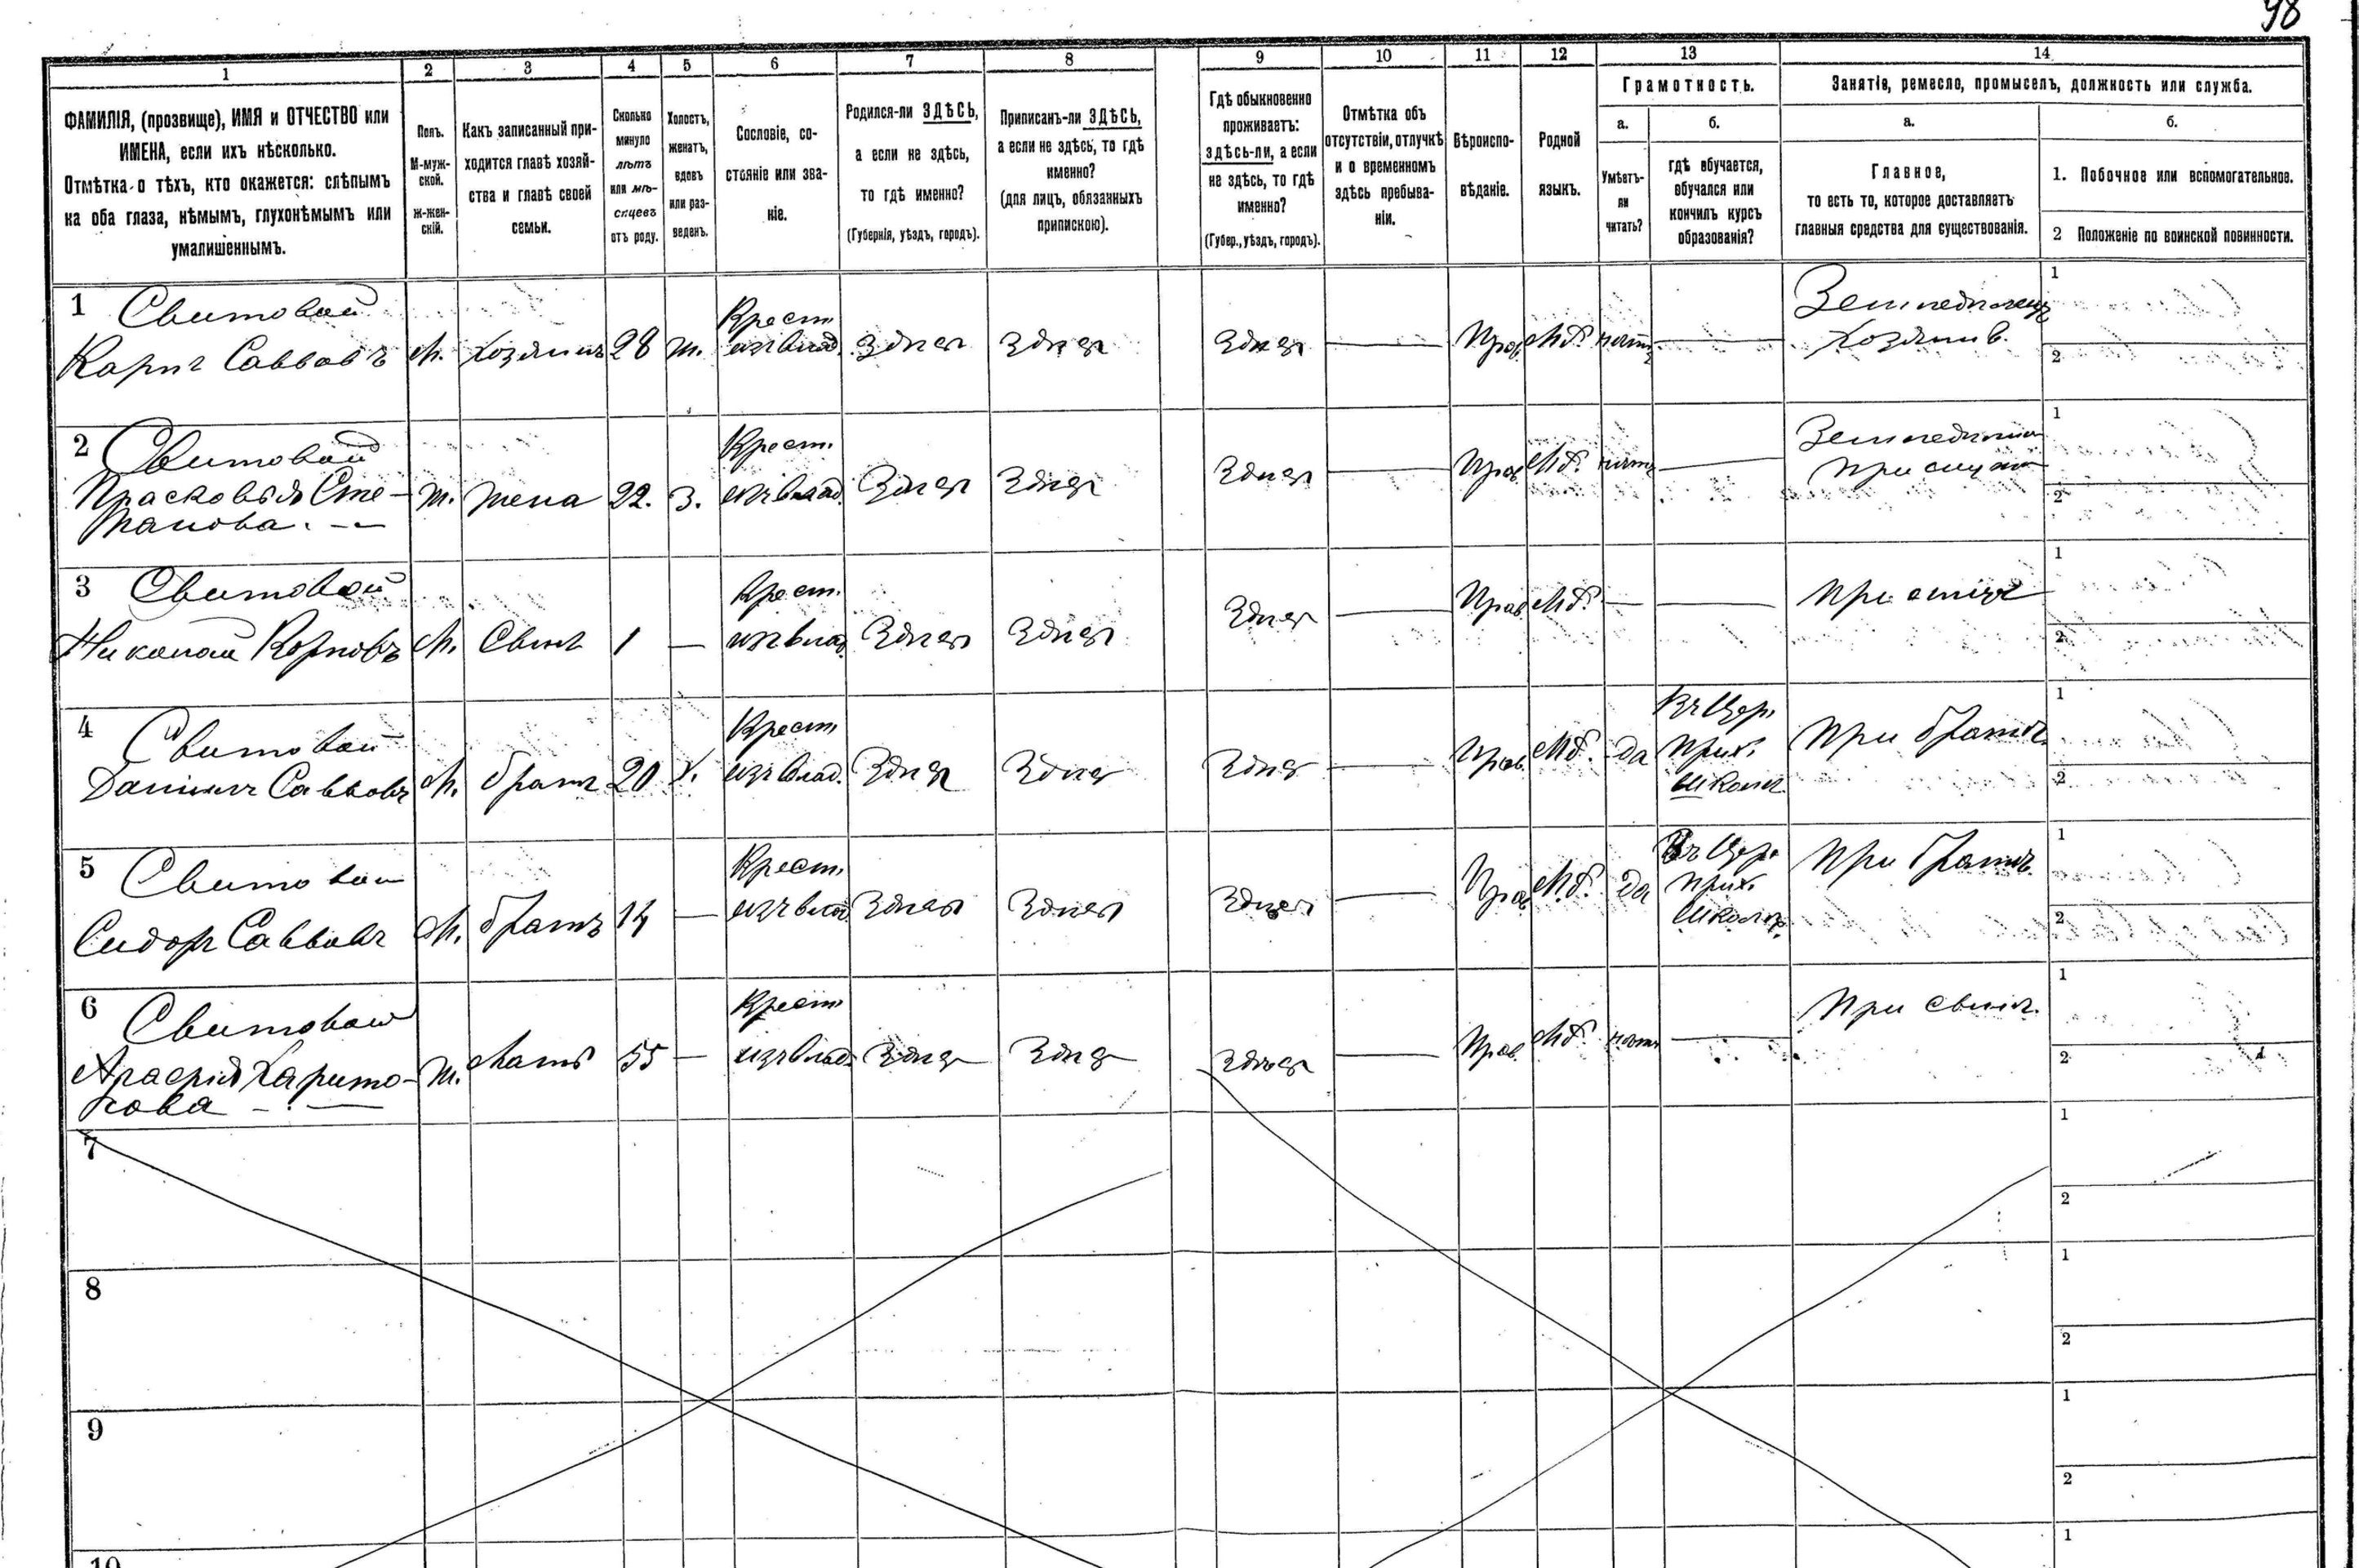 98
1 2 3 4 5 6 7 8 9 10 11 12 13 14
ФАМИЛІЯ, (прозвище), ИМЯ и ОТЧЕСТВО или
ИМЕНА, если ихъ нѣсколько.
Отмѣтка о тѣхъ, кто окажется: слѣпымъ
на оба глаза, нѣмымъ, глухонѣмымъ или
умалишеннымъ.
Полъ.
М-муж-
ской.
ж-жен-
скій.
Какъ записанный при-
ходится главѣ хозяй-
ства и главѣ своей
семьи.
Сколько
минуло
лѣтъ
или мѣ-
сяцевъ
отъ роду.
Холостъ,
женатъ,
вдовъ
или раз-
веденъ.
Сословіе, со-
стояніе или зва-
ніе.
Родился-ли ЗДѢСЬ,
а если не здѣсь,
то гдѣ именно?
(Губернія, уѣздъ, городъ).
Приписанъ-ли ЗДѢСЬ,
а если не здѣсь, то гдѣ
именно?
(для лицъ, обязанныхъ
припискою).
Гдѣ обыкновенно
проживаетъ:
здѣсь-ли, а если
не здѣсь, то гдѣ
именно?
(Губер., уѣздъ, городъ).
Отмѣтка объ
отсутствіи, отлучкѣ
и о временномъ
здѣсь пребыва-
ніи.
Вѣроиспо-
вѣданіе.
Родной
языкъ.
Грамотность.
а.
Умѣетъ-
ли
читать?
б.
гдѣ обучается,
обучался или
кончилъ курсъ
образованія?
Занятія, ремесло, промыселъ, должность или служба.
а.
Главное,
то есть то, которое доставляетъ
главныя средства для существованія.
б.
1. Побочное или вспомогательное.
2 Положеніе по воинской повинности.
1 Свитовой
Карпъ Саввовъ
м. хозяинъ 28 ж.
Крест.
изъ влад.
здѣся здѣся здѣся — Прав. Мд. нѣтъ —
Земледѣлецъ
хозяинъ
1
2
2 Свитовой
Прасковья Сте-
панова.
ж. жена 22. З.
Крест.
изъ влад.
здѣся здѣся здѣся — Прав. Мд. нѣтъ —
при мужѣ
1
2
3 Свитовой
Николай Карповъ
м. Сынъ 1 —
Крест.
изъ влад.
здѣся здѣся здѣся — Прав. Мд. — —
при отцѣ
1
2
4 Свитовой
Даніилъ Саввовъ
м. братъ 20 х.
Крест.
изъ влад.
здѣся здѣся здѣся — Прав. Мд. да
Въ Церк.
прих.
школѣ
при братѣ
1
2
5 Свитовой
Сидоръ Саввовъ
м. братъ 14 —
Крест.
изъ влад.
здѣся здѣся здѣся — Прав. Мд. да
Въ Церк.
прих.
школѣ.
при братѣ
1
2
6 Свитовой
Харито-
нова
ж. мать 55 —
Крест.
изъ влад.
здѣся здѣся здѣся — Прав. Мд. нѣтъ —
при сынѣ.
1
2
7
1
2
8
1
2
9
1
2
10
1